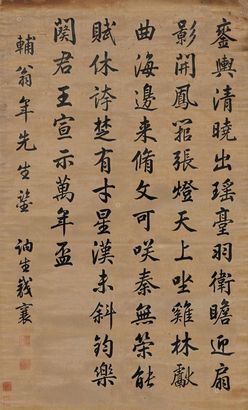 銮輿清曉出瑤臺羽衛瞻迎扇
影開鳳詔張燈天上坐雞林獻
曲海邊來脩文可咲秦無策能
賦休誇楚有才星漢未斜鈞樂
闋君王宣示萬年盃
輔翁年先生鑒 誧生莪襄